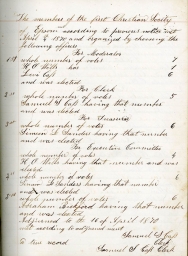 The members of the first Christian Society
of Epsom according to previous notice met
April 9 1870 and organized by choosing the
following officers
For Moderator
1st whole number of votes 7
H. O. Mills has
Levi Cass 6
and was elected
For Clerk
2nd whole number of votes 5
Samuel G Cass having that number
and was elected
For Treasurer
3d whole number of votes 6
Simeon L Sanders having that number
and was elected
For Executive Committee
whole number of votes 4
H. O. Mills having that number and was
elected
2nd whole number of votes 6
Simeon L Sanders having that number
and was elected
3d whole number of votes 6
Abraham having that number
and was elected
Adjourned to the 16 of April 1870
Met according to adjournment
Samuel G Cass
Clerk
A true record
Samuel G Cass Clerk